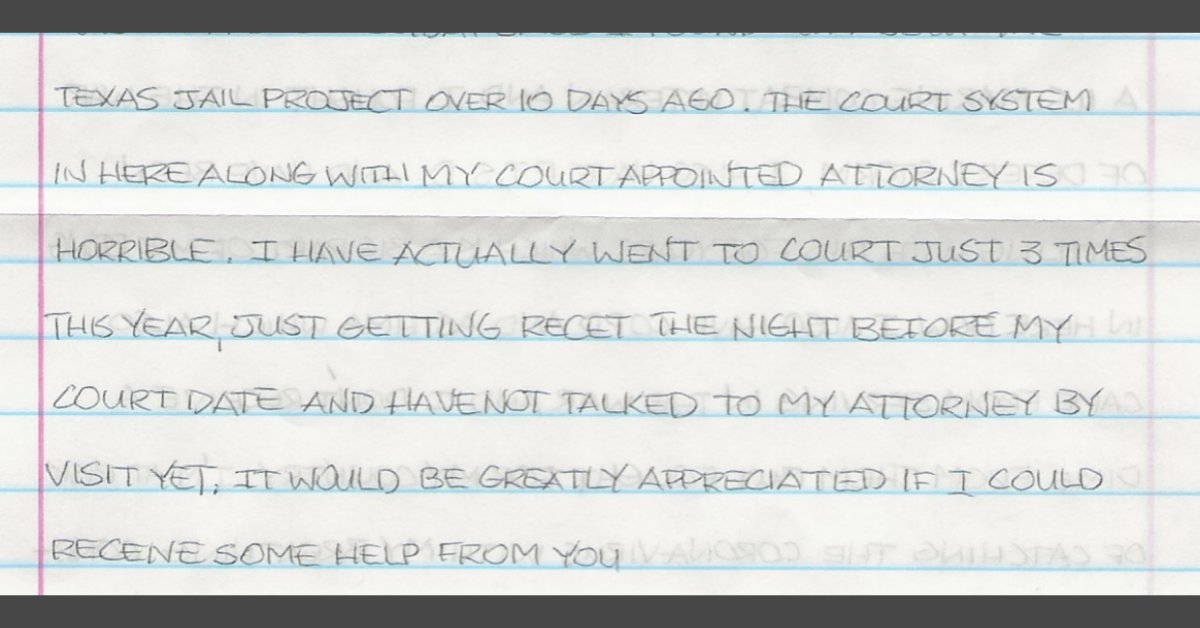 TEXAS JAIL PROJECT OVER 10 DAYS AGO. THE COURT SYSTEM
IN HERE ALONG WITH MY COURT APPOINTED ATTORNEY IS
HORRIBLE. I HAVE ACTUALLY WENT TO COURT JUST 3 TIMES
THIS YEAR, JUST GETTING RECET THE NIGHT BEFORE MY
COURT DATE AND HAVE NOT TALKED TO MY ATTORNEY BY
VISIT YET. IT WOULD BE GREATLY APPRECIATED IF I COULD
RECEIVE SOME HELP FROM YOU